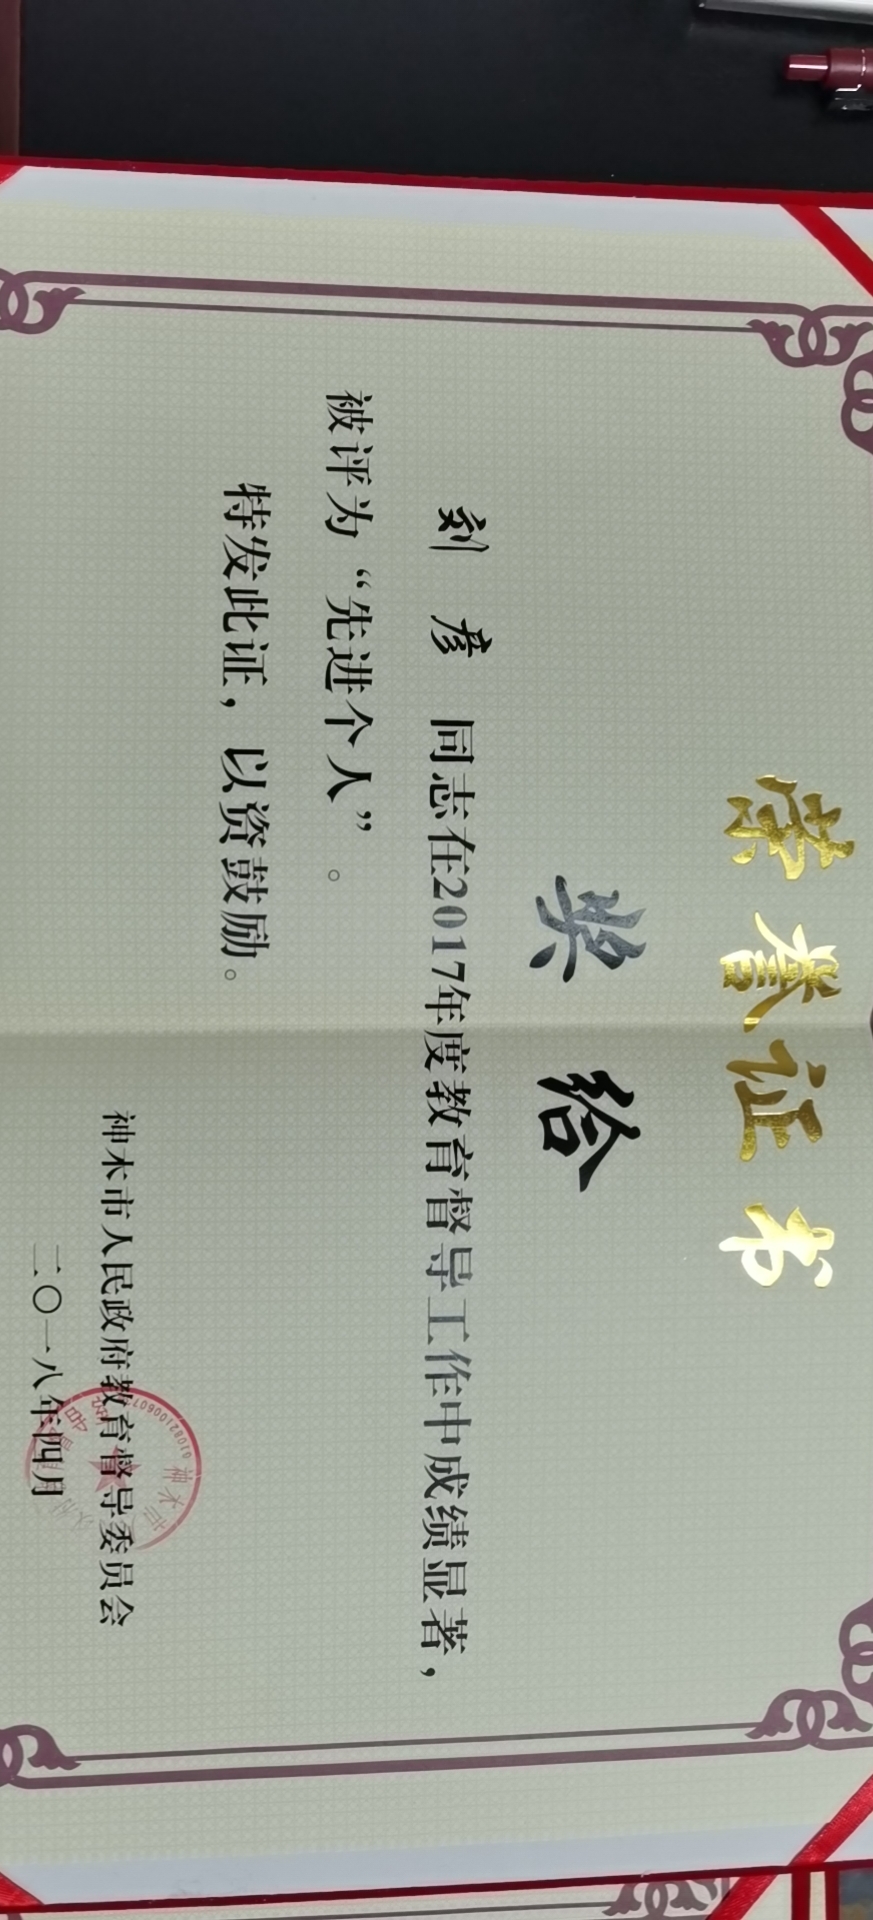 荣誉证书
奖给
刘彦 同志在2017年度教育督导工作中成绩显著，
被评为“先进个人”。
特发此证，以资鼓励。
神木市人民政府教育督导委员会
二〇一八年四月
神木市